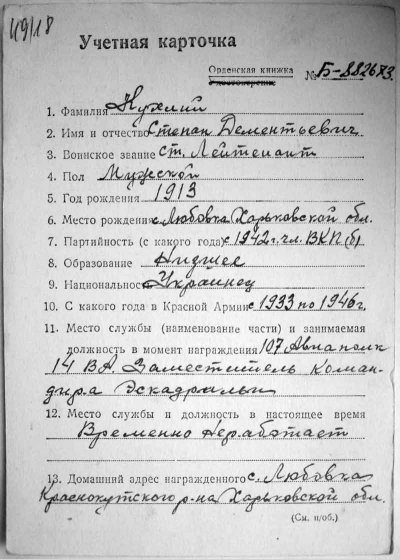 49/18
Учетная карточка
Орденская книжка
Удостоверение
№ Б-882673
1. Фамилия Нухлий
2. Имя и отчество Степан Дементьевич
3. Воинское звание ст. Лейтенант
4. Пол Мужской
5. Год рождения 1913
6. Место рождения с. Любовка Харьковской обл.
7. Партийность (с какого года) с 1942 г. чл. ВКП(б)
8. Образование Низшее
9. Национальность Украинец
10. С какого года в Красной Армии с 1933 по 1946 г.
11. Место службы (наименование части) и занимаемая
должность в момент награждения 107 Авиаполк
14 ВА, Заместитель коман-
дира Эскадрильи
12. Место службы и должность в настоящее время
Временно неработает
13. Домашний адрес награжденного с. Любовка
Краснокутского р-на Харьковской обл.
(См. н/об.)